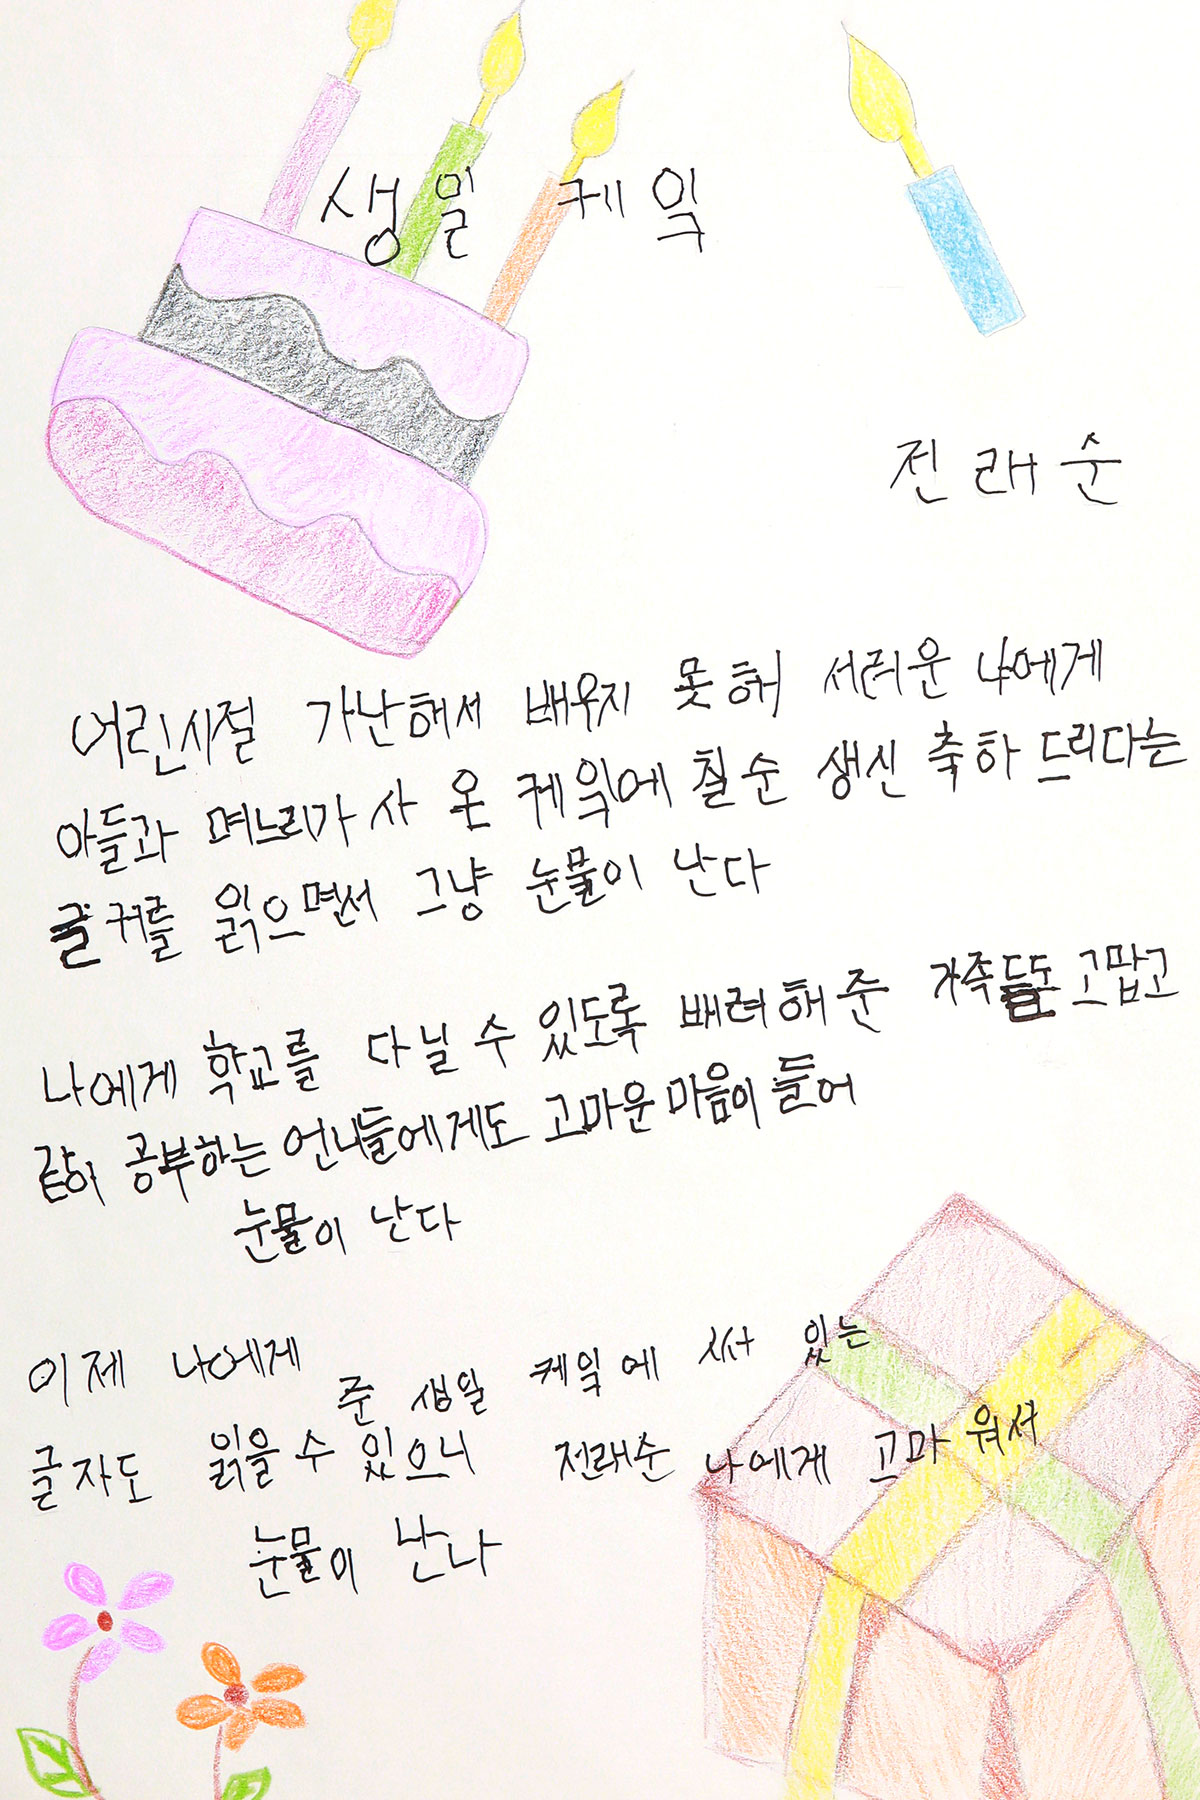 생일 케잌
전래순
어린시절 가난해서 배우지 못해 서러운 나에게
아들과 며느리가 사 온 케잌에 칠순 생신 축하 드리다는
글귀를 읽으면서 그냥 눈물이 난다
나에게 학교를 다닐 수 있도록 배려해준 가족들도 고맙고
같이 공부하는 언니들에게도 고마운 마음이 들어
눈물이 난다
이제 나에게
준 생일 케잌에 써 있는
글자도 읽을 수 있으니 전래순 나에게 고마워서
눈물이 난다